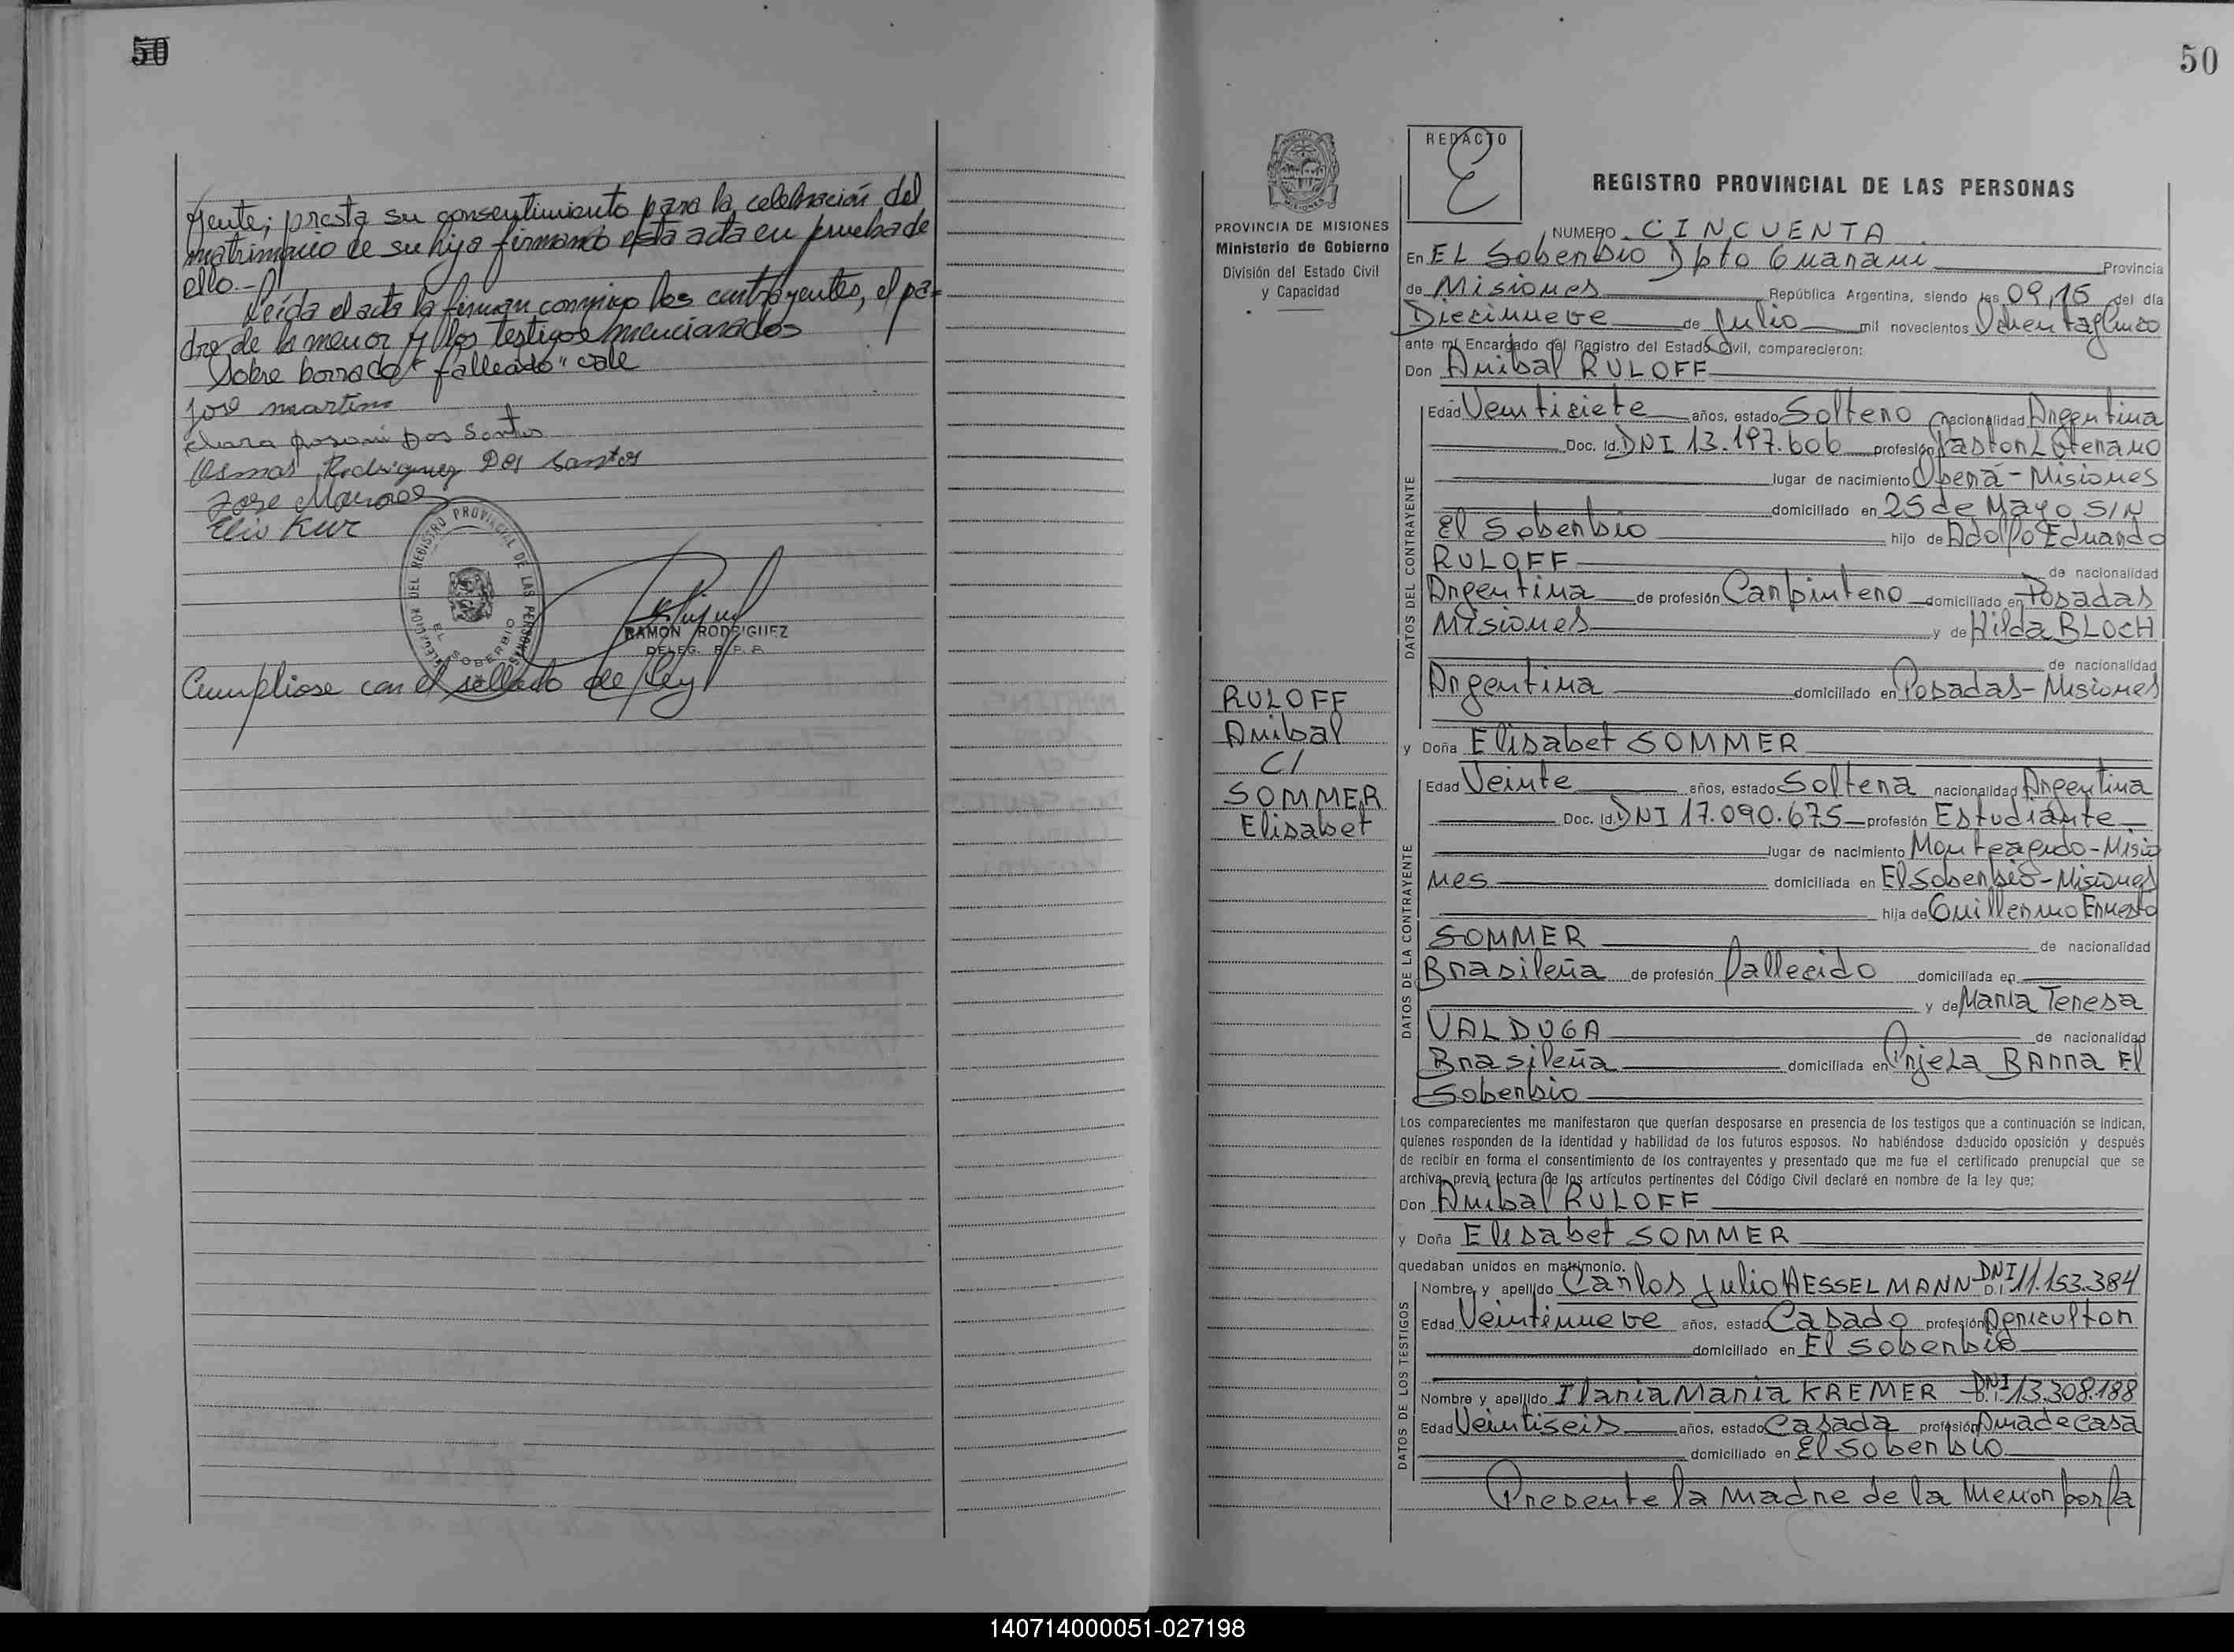 50
Mente; presta su consentimiento para la celebración del
matrimonio de su hija firmando esta acta en prueba de
ello.-
Leída el acta la firman conmigo los contrayentes, el pa-
dre de la menor y los testigos mencionados
Sobre borrado "fallecido" vale
Jose martins
Clara Rosani Dos Santos
Osmar Rodriguez Dos Santos
Jose
Elio Kur
DELEGACION DEL REGISTRO PROVINCIAL DE LAS PERSONAS
EL SOBERBIO
RAMON RODRIGUEZ
DELEG. R. P. P.
Cumpliose con el sellado de ley
50
PROVINCIA DE MISIONES
Ministerio de Gobierno
División del Estado Civil
y Capacidad
RULOFF
Anibal
C/
SOMMER
Elisabet
REDACTO
E
REGISTRO PROVINCIAL DE LAS PERSONAS
NUMERO CINCUENTA
En EL Soberbio Dpto Guarani Provincia
de Misiones República Argentina, siendo las 09,15 del día
Diecinueve de Julio mil novecientos Ochentaycinco
ante mí Encargado del Registro del Estado Civil, comparecieron:
Don Anibal RULOFF
DATOS DEL CONTRAYENTE
Edad Veintisiete años, estado Soltero nacionalidad Argentina
Doc. Id. DNI 13.197.606 profesión Pastor Luterano
lugar de nacimiento Oberá - Misiones
domiciliado en 25 de Mayo S/N
El Soberbio hijo de Adolfo Eduardo
RULOFF de nacionalidad
Argentina de profesión Carpintero domiciliado en Posadas
Misiones y de Hilda BLOCH
de nacionalidad
Argentina domiciliado en Posadas- Misiones
y Doña Elisabet SOMMER
DATOS DE LA CONTRAYENTE
Edad Veinte años, estado Soltera nacionalidad Argentina
Doc. Id. DNI 17.090.675 profesión Estudiante
lugar de nacimiento Monteagudo - Misio
nes domiciliada en El Soberbio - Misiones
hija de Guillermo Ernesto
SOMMER de nacionalidad
Brasileña de profesión fallecido domiciliada en
y de Maria Teresa
VALDUGA de nacionalidad
Brasileña domiciliada en Pinjela BArra El
Soberbio
Los comparecientes me manifestaron que querían desposarse en presencia de los testigos que a continuación se indican,
quienes responden de la identidad y habilidad de los futuros esposos. No habiéndose deducido oposición y después
de recibir en forma el consentimiento de los contrayentes y presentado que me fue el certificado prenupcial que se
archiva, previa lectura de los artículos pertinentes del Código Civil declaré en nombre de la ley que:
Don Anibal RULOFF
y Doña Elisabet SOMMER
quedaban unidos en matrimonio.
DATOS DE LOS TESTIGOS
Nombre y apellido Carlos Julio HESSELMANN D.I. DNI 11.153.384
Edad Veintinueve años, estado Casado profesión Agricultor
domiciliado en El Soberbio
Nombre y apellido Ilaria Maria KREMER D.I. DNI 13.308.188
Edad Veintiseis años, estado Casada profesión Ama de casa
domiciliado en El Soberbio
Presente la madre de la menor por la
140714000051-027198